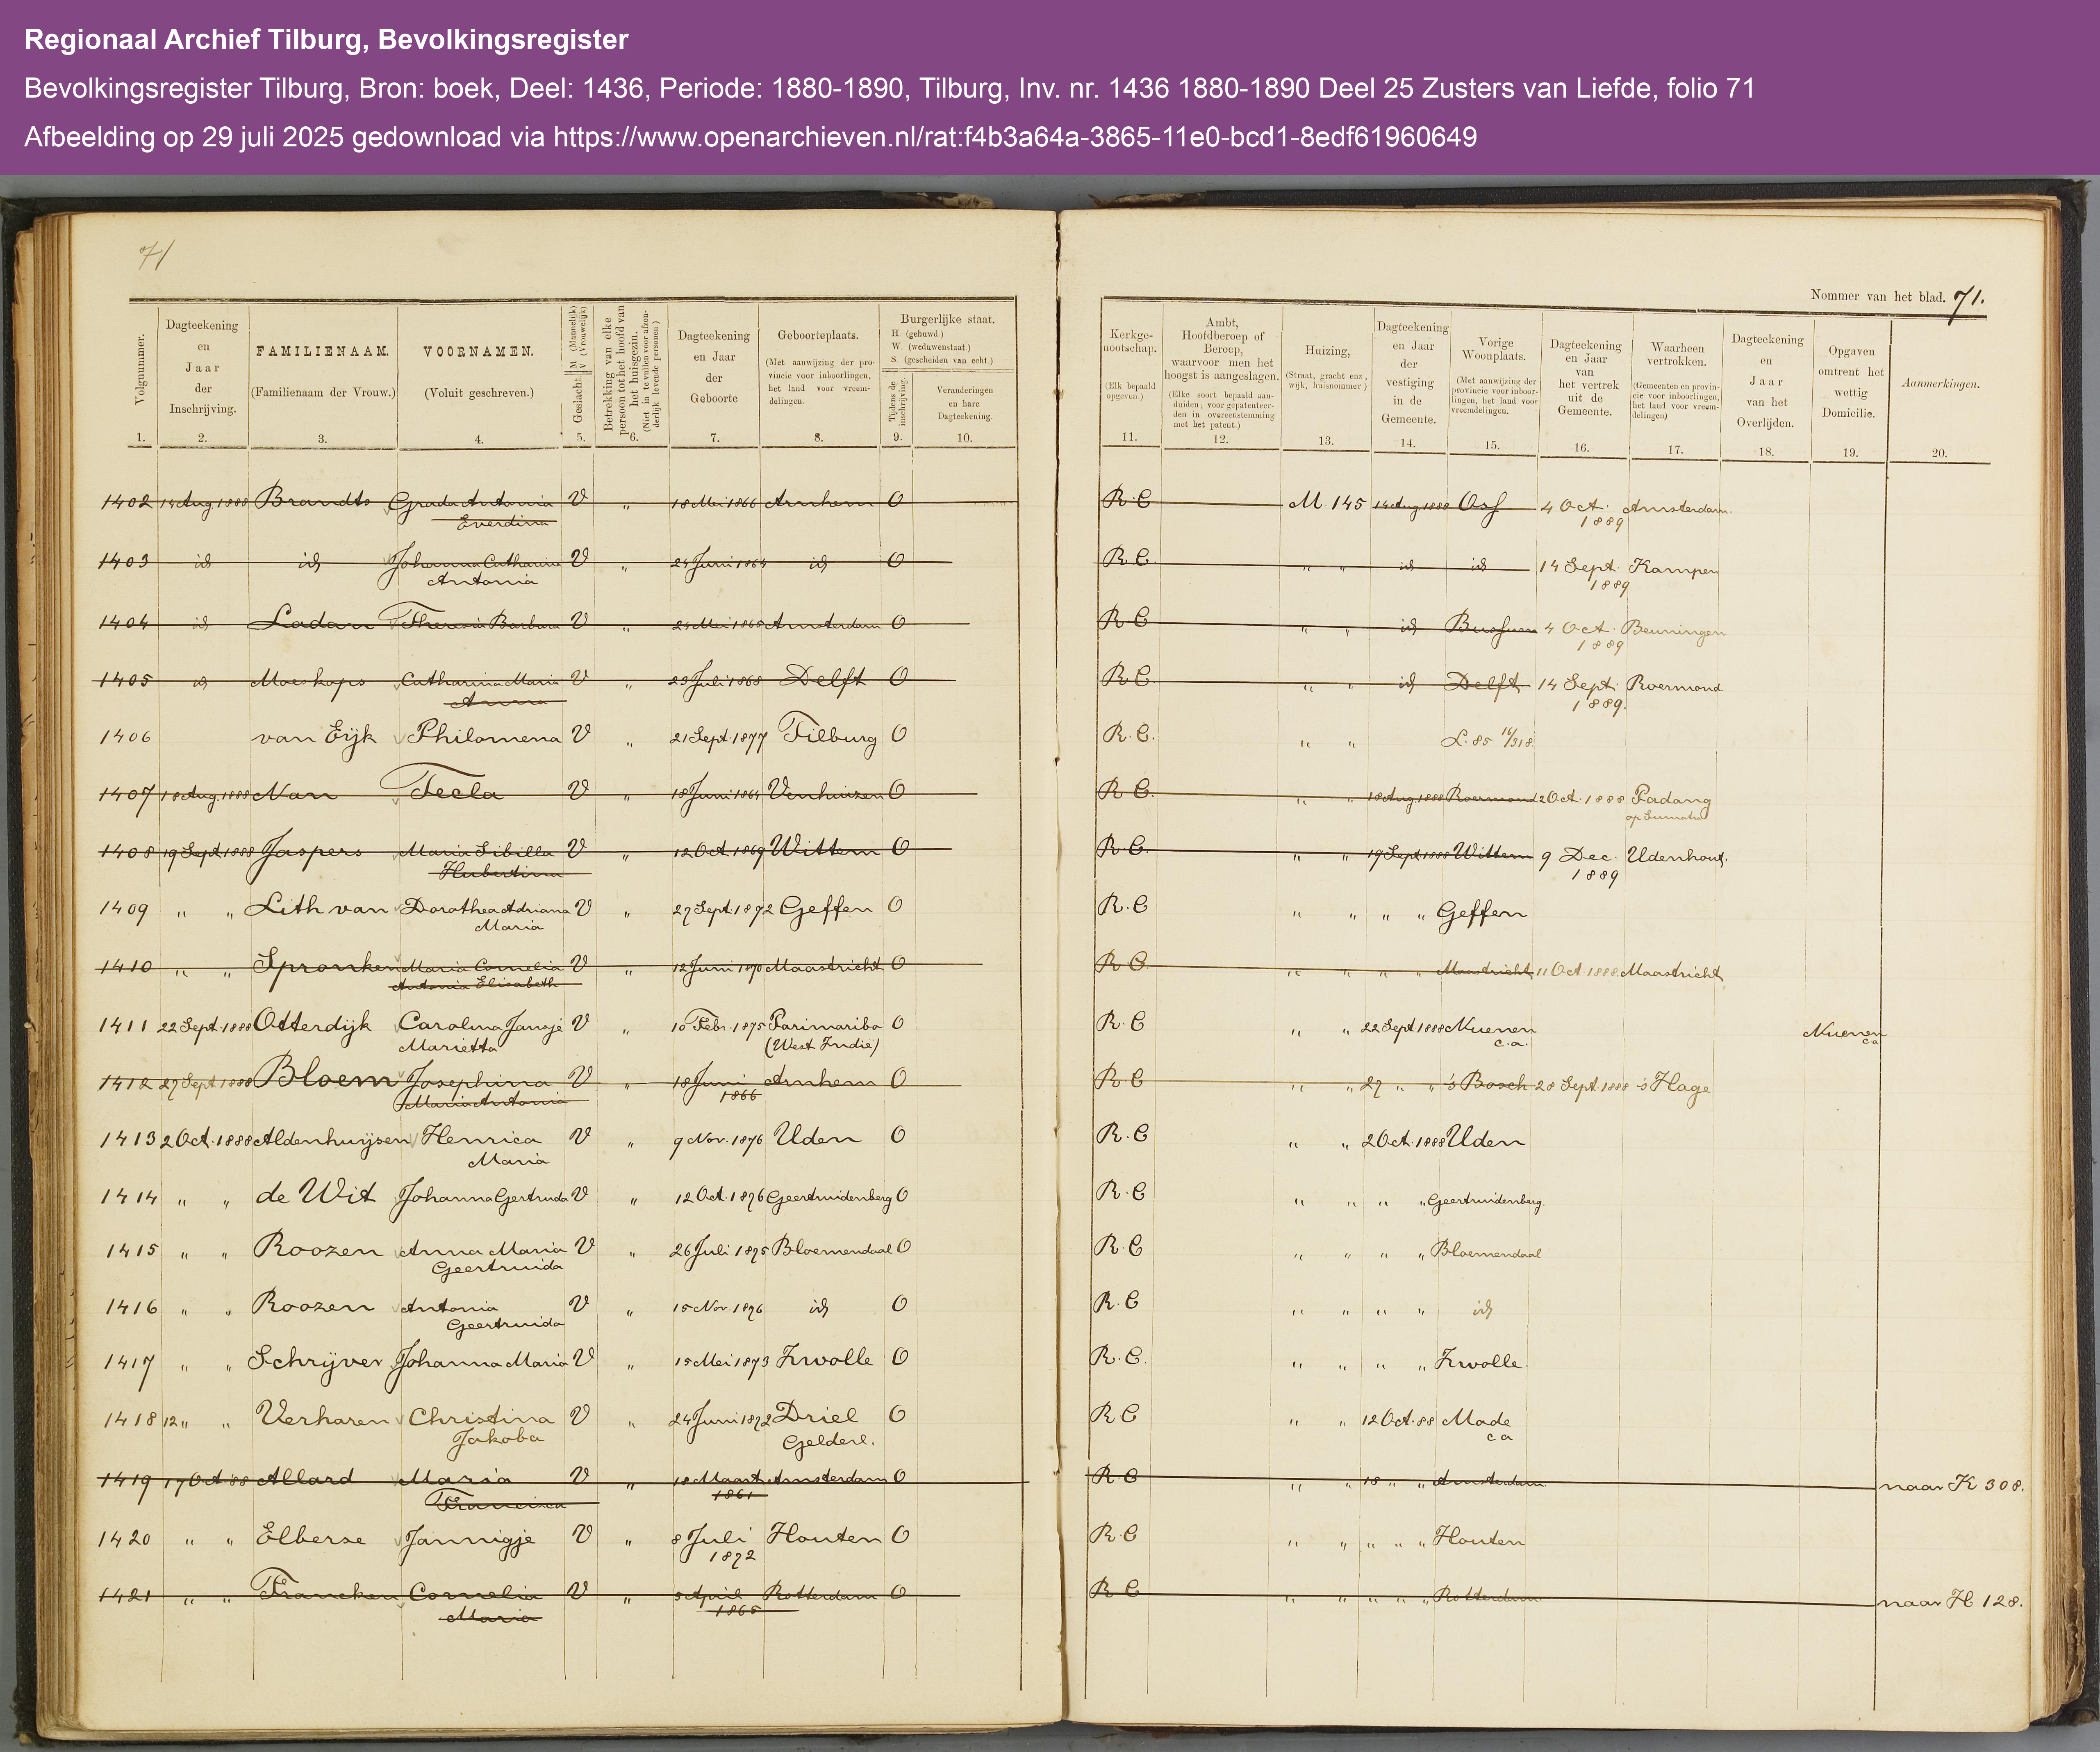 Regionaal Archief Tilburg, Bevolkingsregister
Bevolkingsregister Tilburg, Bron: boek, Deel: 1436, Periode: 1880-1890, Tilburg, Inv. nr. 1436 1880-1890 Deel 25 Zusters van Liefde, folio 71
Afbeelding op 29 juli 2025 gedownload via https://www.openarchieven.nl/rat:f4b3a64a-3865-11e0-bcd1-8edf61960649
71
Nommer van het blad. 71.
Volgnummer. 1.
Dagteekening en Jaar der Inschrijving. 2.
FAMILIENAAM. (Familienaam der Vrouw.) 3.
VOORNAMEN. (Voluit geschreven.) 4.
Geslacht M (Mannelijk) V (Vrouwelijk) 5.
Betrekking van elke persoon tot het hoofd van het huisgezin. (Niet in te vullen voor afzonderlijk levende personen.) 6.
Dagteekening en Jaar der Geboorte 7.
Geboorteplaats. (Met aanwijzing der provincie voor inboorlingen, het land voor vreemdelingen. 8.
Burgerlijke staat. H (gehuwd.) W. (weduwenstaat.) S. (gescheiden van echt.)
Tijdens de inschrijving. 9.
Veranderingen en hare Dagteekening. 10.
Kerkgenootschap. (Elk bepaald opgeven.) 11.
Ambt, Hoofdberoep of Beroep, waarvoor men het hoogst is aangeslagen. (Elke soort bepaald aanduiden; voor gepatenteerden in overeenstemming met het patent.) 12.
Huizing, (Straat, gracht enz., wijk, huisnommer) 13.
Dagteekening en Jaar der vestiging in de Gemeente. 14.
Vorige Woonplaats. (Met aanwijzing der provincie voor inboorlingen, het land voor vreemdelingen. 15.
Dagteekening en Jaar van het vertrek uit de Gemeente. 16.
Waarheen vertrokken. (Gemeenten en provincie voor inboorlingen, het land voor vreemdelingen) 17.
Dagteekening en Jaar van het Overlijden. 18.
Opgaven omtrent het wettig Domicilie. 19.
Aanmerkingen. 20.
1402 14 Aug. 1888 Brandts Grada Antonia V „ 18 Mei 1866 Arnhem O R.C M. 145 14 Aug 1888 Oss 4 Oct. Amsterdam.
Everdina 1889
1403 id id Johanna Catharina V „ 24 Juni 1864 id O R.C. „ „ id id 14 Sept. Kampen
Antonia 1889
1404 id Ladan Theresia Barbara V „ 24 Mei 1865 Amsterdam O R.C „ „ id Bussum 4 Oct. Beuningen
1889
1405 id Moeskops Catharina Maria V „ 23 Juli 1868 Delft O R.C „ „ id Delft 14 Sept. Roermond
Anna 1889.
1406 van Eijk Philomena V „ 21 Sept. 1877 Tilburg O R.C. „ „ L. 85 16/318.
1407 18 Aug. 1888 Nan Tecla V „ 18 Juni 1864 Venhuizen O R.C. „ „ 18 Aug 1888 Roermond 2 Oct. 1888 Padang
op Sumatra
1408 19 Sept. 1888 Jaspers Maria Sibilla V „ 12 Oct. 1869 Wittem O R.C. „ „ 19 Sept 1888 Wittem 9 Dec. Udenhout.
Hubertina 1889
1409 „ „ Lith van Dorothea Adriana V „ 27 Sept. 1872 Geffen O R.C „ „ „ „ Geffen
Maria
1410 „ „ Spronken Maria Cornelia V „ 12 Juni 1870 Maastricht O R.C. „ „ „ „ Maastricht 11 Oct 1888. Maastricht
Antonia Elisabeth
1411 22 Sept. 1888 Otterdijk Carolina Jansje V „ 10 Febr. 1875 Parimaribo O R.C „ „ 22 Sept 1888 Nuenen Nuenen
Marietta (West Indië) c.a. ca
1412 27 Sept 1888 Bloem Josephina V „ 18 Juni Arnhem O R.C „ „ 27 „ „ 's Bosch 28 Sept. 1888 's Hage
Maria Antonia 1866
1413 2 Oct. 1888 Aldenhuijsen Henrica V „ 9 Nov. 1876 Uden O R.C „ „ 2 Oct. 1888 Uden
Maria
1414 „ „ de Wit Johanna Gertruda V „ 12 Oct. 1876 Geertruidenberg O R.C „ „ „ „ Geertruidenberg.
1415 „ „ Roozen Anna Maria V „ 26 Juli 1875 Bloemendaal O R.C „ „ „ „ Bloemendaal
Geertruida
1416 „ „ Roozen Antonia V „ 15 Nov. 1876 id O R.C „ „ „ „ id
Geertruida
1417 „ „ Schrijver Johanna Maria V „ 15 Mei 1873 Zwolle O R.C. „ „ „ „ Zwolle.
1418 12 „ „ Verharen Christina V „ 24 Juni 1872 Driel O R.C „ „ 12 Oct. 88 Made
Jakoba Gelderl. ca
1419 17 Oct 88 Allard Maria V „ 18 Maart Amsterdam O R.C „ „ 18 „ „ Amsterdam. naar K 308.
Francisca 1861
1420 „ „ Elberse Jannigje V „ 8 Juli Houten O R.C „ „ „ „ „ Houten
1872
1421 „ „ Francken Cornelia V „ 5 April Rotterdam O R.C „ „ „ „ „ Rotterdam naar H 128.
Maria 1865